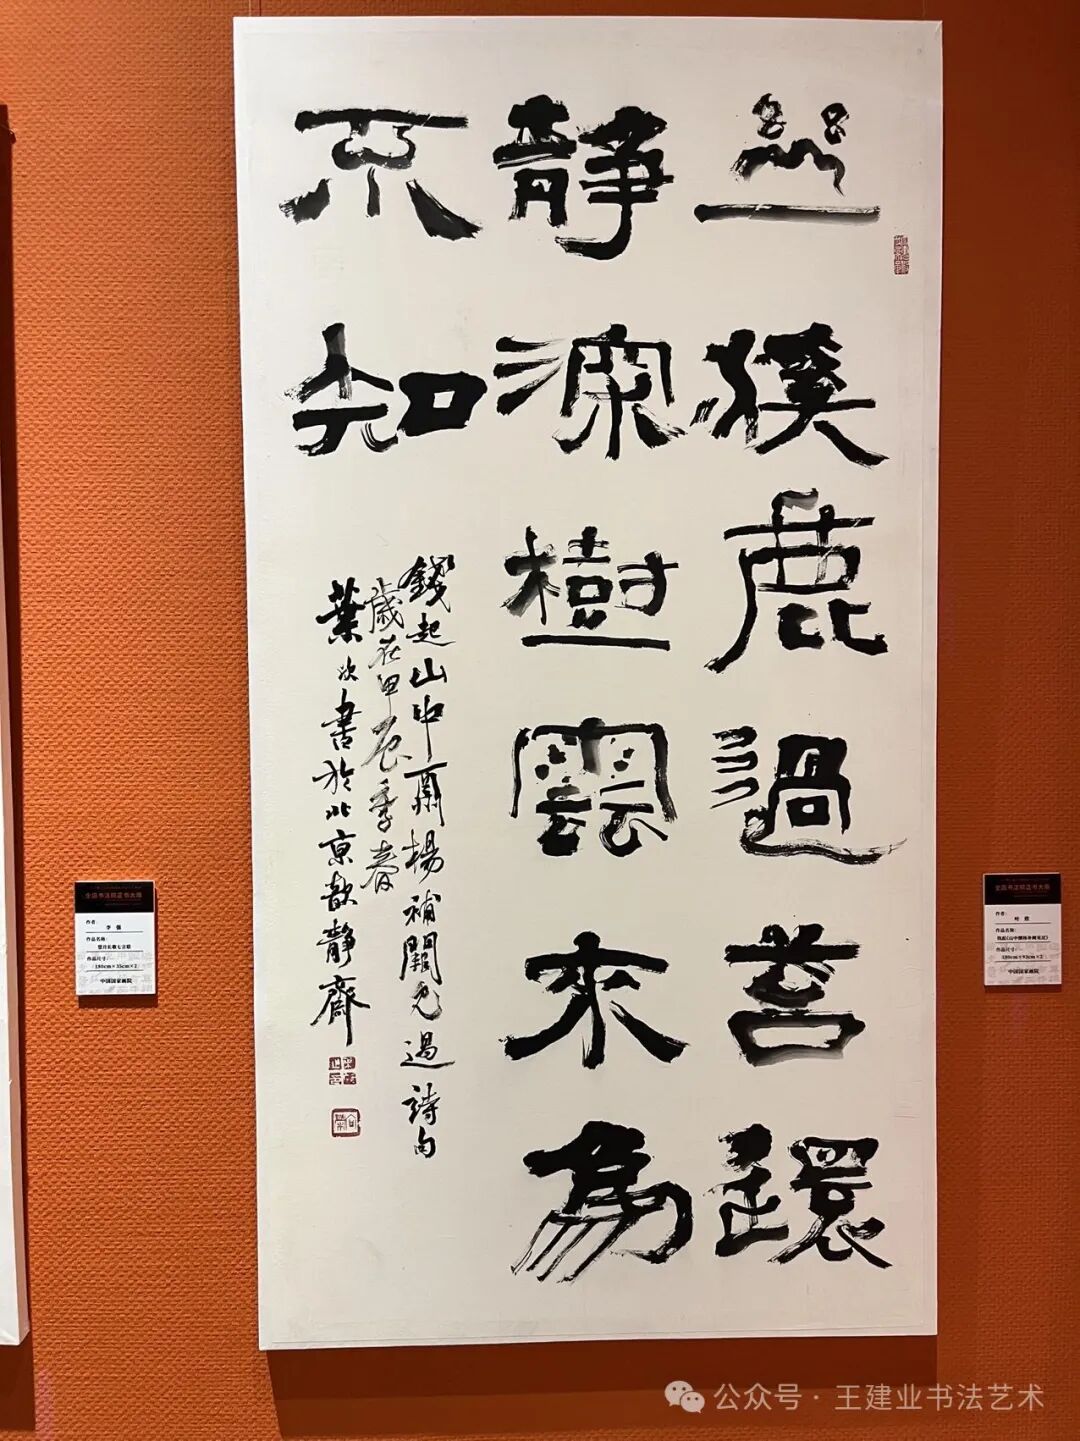 幽溪鹿過苔還
靜深樹雲來鳥
不知
錢起山中酬楊補闕見過詩句
歲在甲辰季春
葉欣書於北京歆靜齋
作者:
李 强
作品名称:
作品尺寸:
180cm×35cm×2
中国国家画院
作者:
叶 欣
作品名称:
钱起《山中酬杨补阙见过》
作品尺寸:
180cm×93cm×2
中国国家画院
公众号·王建业书法艺术